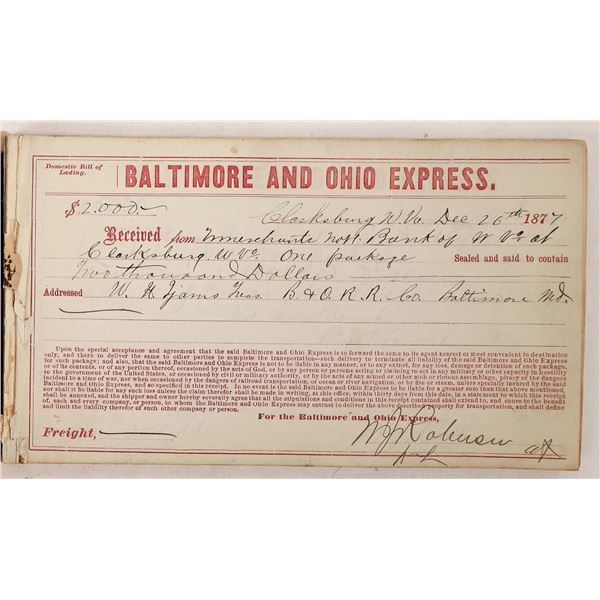 Domestic Bill of
Lading.
BALTIMORE AND OHIO EXPRESS.
$2.000.-
Clarksburg W. Va. Dec 26th 1877
Received from Merchants Natl Bank of W Va at
Clarksburg W Va One package Sealed and said to contain
Two thousand Dollars
Addressed W. H. Ijams Treas. B & O. R. R. Co. Baltimore Md.
Upon the special acceptance and agreement that the said Baltimore and Ohio Express is to forward the same to its agent nearest or most convenient to destination
only, and there to deliver the same to other parties to complete the transportation—such delivery to terminate all liability of the said Baltimore and Ohio Express
for such package; and also, that the said Baltimore and Ohio Express is not to be liable in any manner, or to any extent, for any loss, damage or detention of such package,
or of its contents, or of any portion thereof, occasioned by the acts of God, or by any person or persons acting or claiming to act in any military or other capacity in hostility
to the government of the United States, or occasioned by civil or military authority, or by the acts of any armed or other mob or riotous assemblage, piracy, or the dangers
incident to a time of war, nor when occasioned by the dangers of railroad transportation, or ocean or river navigation, or by fire or steam, unless specially insured by said
Baltimore and Ohio Express, and so specified in this receipt. In no event is the said Baltimore and Ohio Express to be liable for a greater sum than that above mentioned,
nor shall it be liable for any such loss unless the claims therefor shall be made in writing, at this office, within thirty days from this date, in a statement to which this receipt
shall be annexed, and the shipper and owner hereby severally agree that all the stipulations and conditions in this receipt contained shall extend to, and enure to the benefit
of, each and every company or person to whom the Baltimore and Ohio Express may entrust or deliver the above described property for transportation, and shall define
and limit the liability therefor of such other company or person.
For the Baltimore and Ohio Express,
Freight,
Robinson